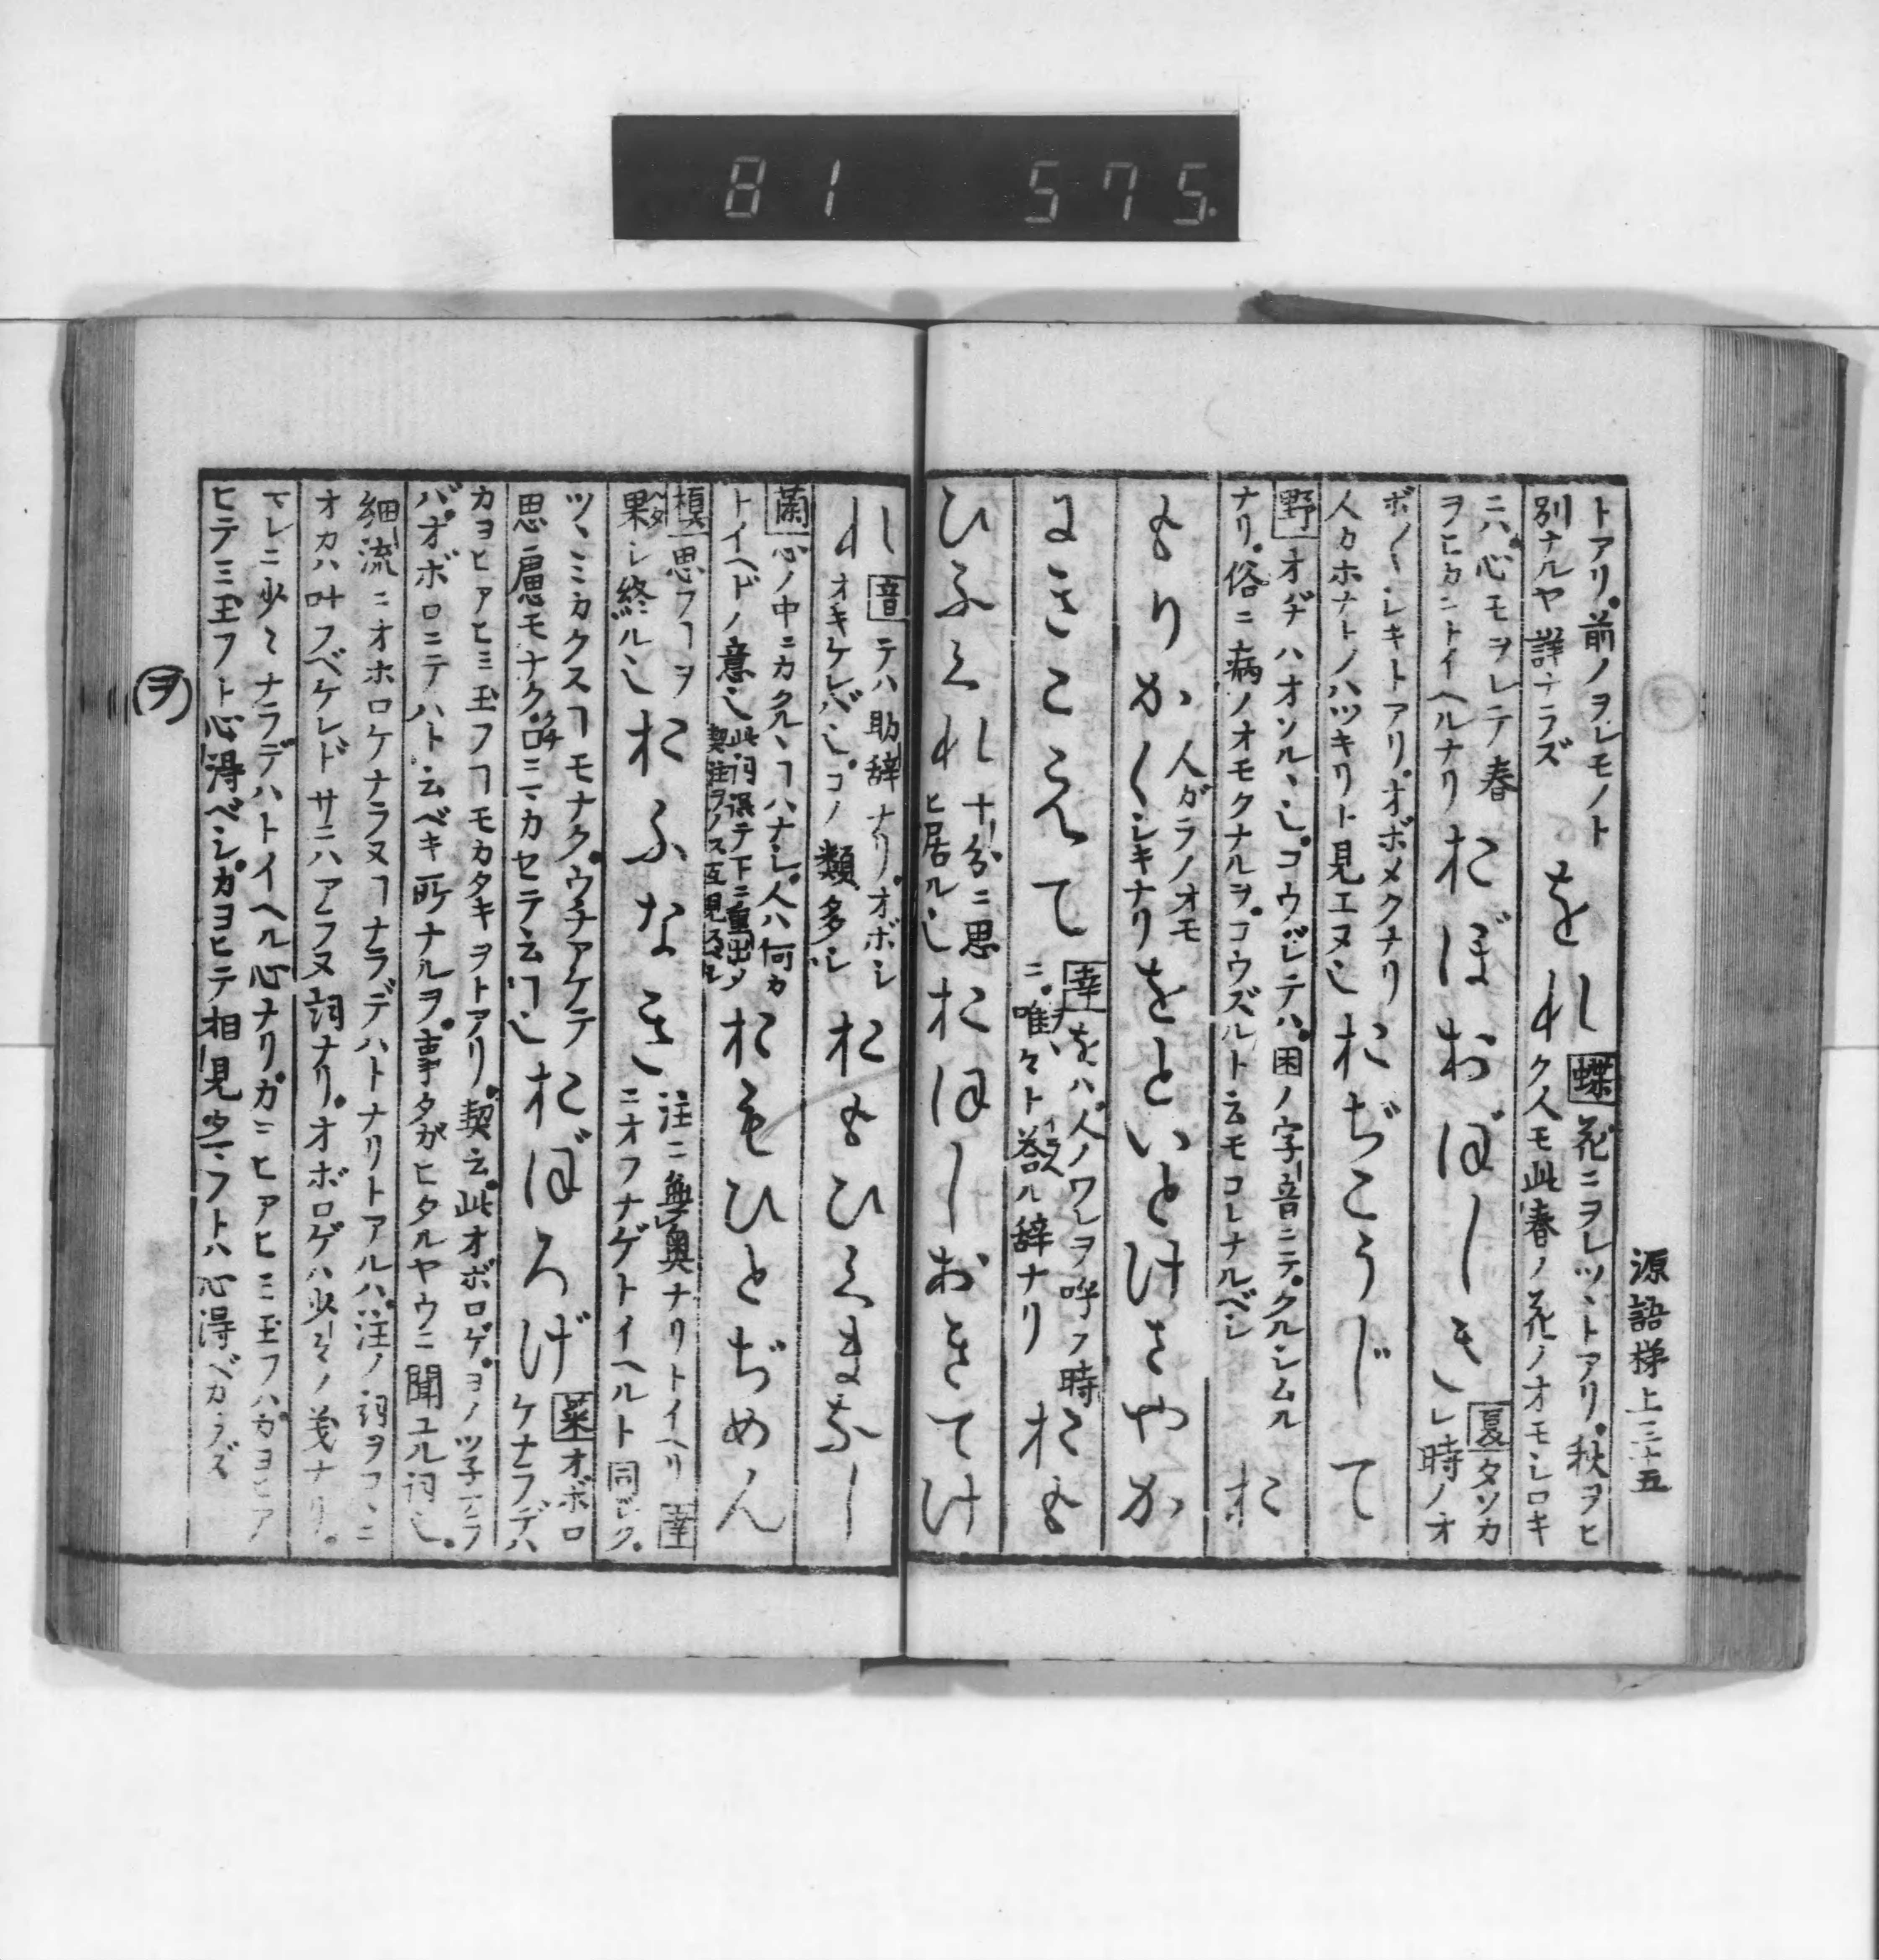 81 575
源語梯上三十五
トアリ。前ノヲレモノト
別ナルヤ詳ナラズ
をれ
蝶 花ニヲレツヽトアリ。秋ヲヒ
ク人モ此春ノ花ノオモシロキ
ニハ。心モヲレテ春
ヲヒカントイヘルナリ
おぼおぼしき
夏 タソカ
レ時ノオ
ボ〳〵シキトアリ。オボメクナリ
人カホナトノハツキリト見エヌ也
おぢこうじて
野 オヂハオソルヽ也。コウジテハ。困ノ字音ニテ。クルシムル
ナリ。俗ニ病ノオモクナルヲ。コウズルト云モコレナルベシ
およりかく
人ガラノオモ
シキナリ
をといとけさやか
にきこえて
幸 をハ人ノワレヲ呼フ時
ニ。唯々ト答ル辞ナリ
おもひふくれ
十分ニ思
ヒ居ル也
おほしおきてけ
れ
音 テハ助辞ナリ。オボシ
オキケレバ也。コノ類多シ
およひくるまなし
蘭 心ノ中ニカクルヽヿハナシ。人ハ何カ
トイヘドノ意也
おもひとぢめん
槙 思フヿヲ
果シ終ル也
おふなきに
注ニ無奥ナリトイヘリ 幸
ニオフナゲトイヘルト同ジク。
ツヽミカクスヿモナク。ウチアケテ
思慮モナク。口ニマカセテ云ヿ也
おぼろげ
菜 オボロ
ケナラデハ
カヨヒアヒミ玉フヿモカタキヲトアリ。契云。此オボロゲ。ヨノツ子ニテフ
バ。オボロニテハト云ベキ所ナルヲ。事タガヒタルヤウニ聞ユル詞也。
細流ニオホロケナラヌヿナラデハトナリトアルハ。注ノ詞ヲコヽニ
オカハ叶フベケレド。サニハアラヌ詞ナリ。オボロゲハ少シノ義ナリ。
マレニ少〻ナラデハトイヘル心ナリ。カニヒアヒミ玉フハ。カヨヒア
ヒテミ玉フト心得ベシ。カヨヒテ相見タマフトハ心得ベカラズ
ヲ